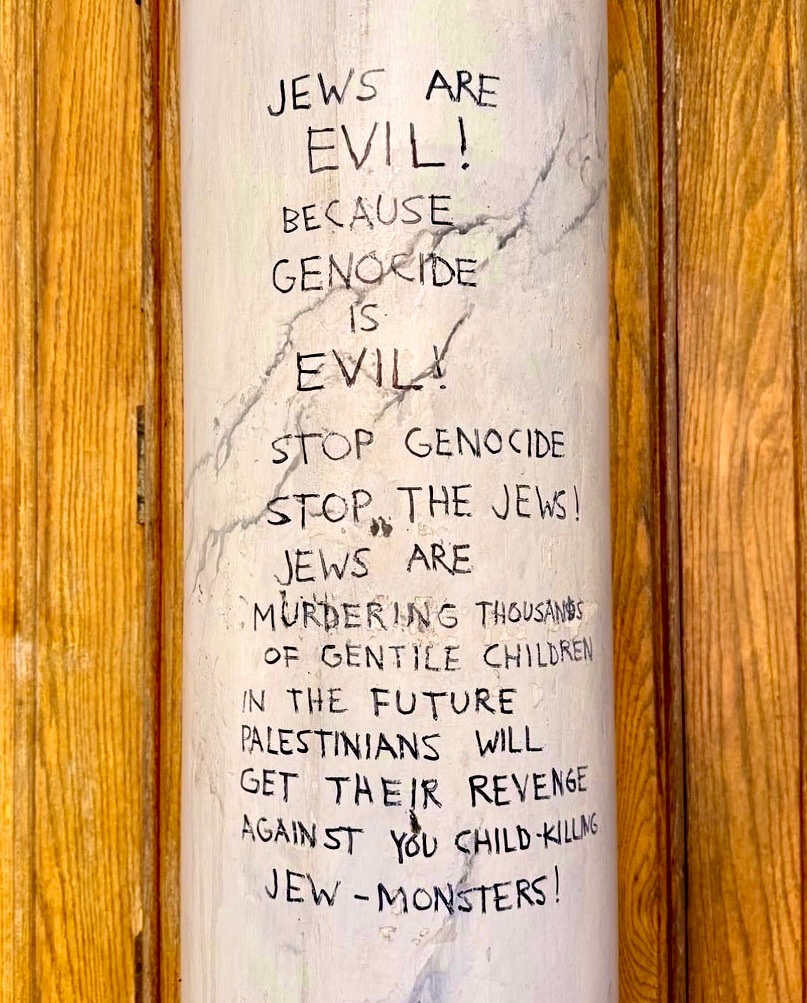 JEWS ARE
EVIL!
BECAUSE
GENOCIDE
IS
EVIL!
STOP GENOCIDE
STOP THE JEWS!
JEWS ARE
MURDERING THOUSANDS
OF GENTILE CHILDREN
IN THE FUTURE
PALESTINIANS WILL
GET THEIR REVENGE
AGAINST YOU CHILD-KILLING
JEW-MONSTERS!